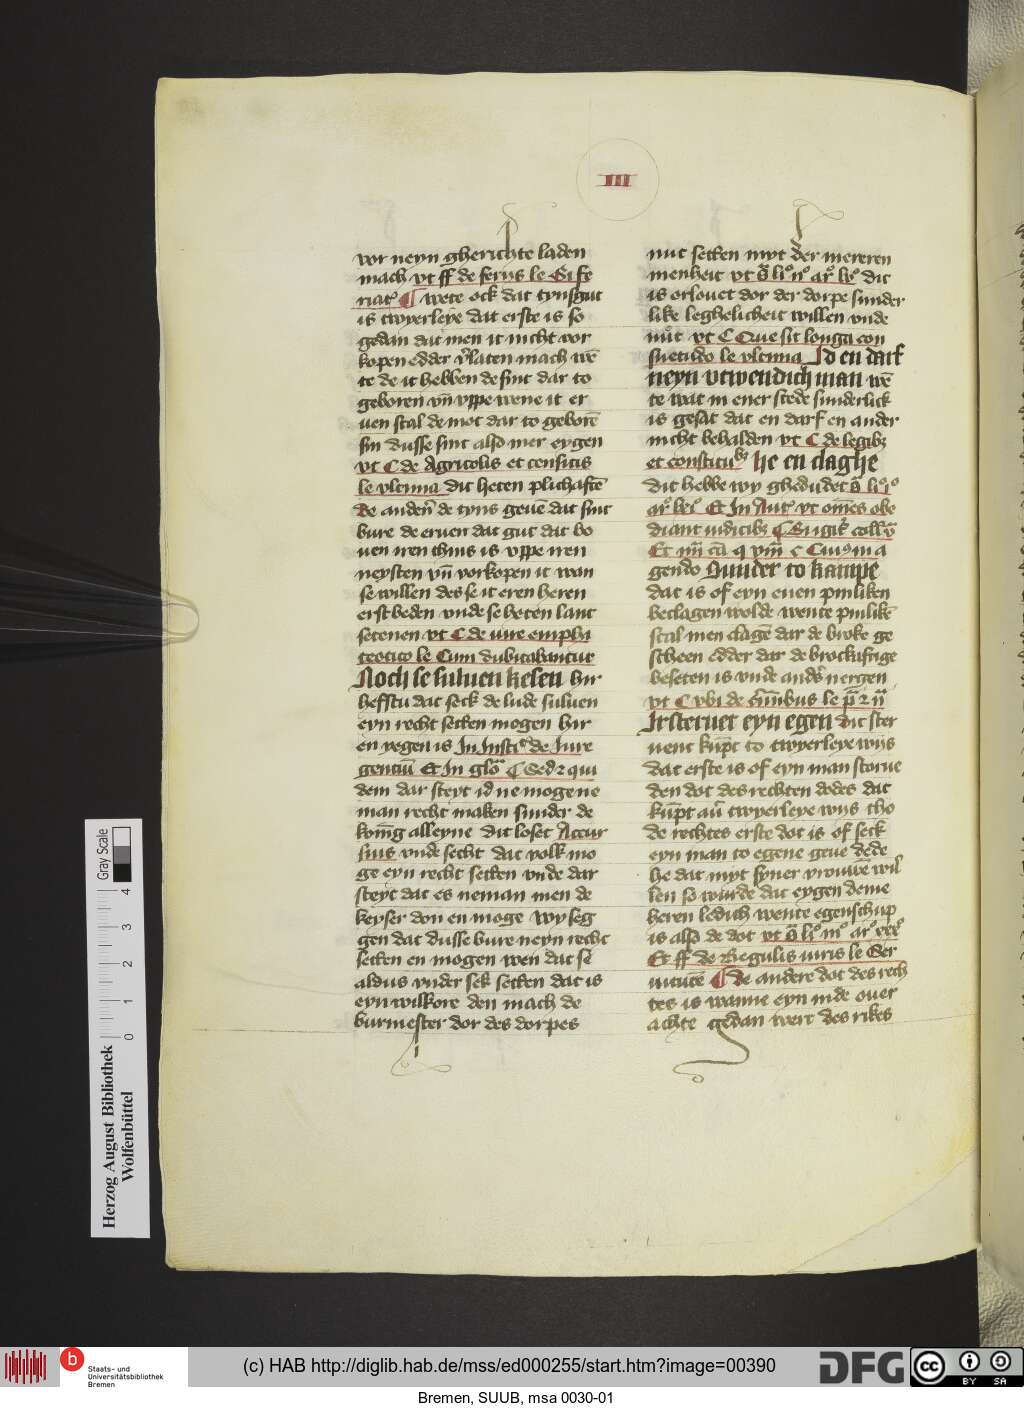 III
vor neyn gherichte laden
mach vt ff de feriis le Si fe
riat᷑ ¶ wete ock dat tynsgut
is twyerleye dat erste is so
gedan dat men it nicht vor
kopen edder v̓laten mach wē
te de it hebben de sint dar to
geboren vn̄ vppe wene it er
uen scal de mot dar to geborē
sin dusse sint also mer eygen
vt C de Agricolis et censitis
le vltima dit heten plichaftē
de anden̄ de tyns geuē dat sint
bure de eruen dat gut dat bo
uen iren thins is vppe iren
neysten vn̄ vorkopen it wan
se willen des se it eren heren
erst beden vnde se beten lant
setenen vt C de iure emphi
teotico le Cum dubitabantur
Noch se suluen kesen hir
hefstu dat seck de lude suluen
eyn recht setten mogen hir
en yegen is In Insti᷑ de Iure
gentiū Et In glo᷑ C Sed z qui
dem dar steyt id ne mogene
man recht maken sunder de
konīg alleyne dit loset Accur
sius vnde secht dat volk mo
ge eyn recht setten vnde dar
steyt dat es neman men de
keyser don en moge wy seg
gen dat dusse bure neyn recht
setten en mogen wen dat se
aldus vnder sek setten dat is
eyn wilkore den mach de
burmester dor des dorpes
nut setten myt der mereren
menheit vt s̄ li° n° ar° lv° dit
is orlouet dor der dorpe sunder
like leghelicheit willen vnde
nut vt C Que sit longa con
suetudo le vltima Id en darf
neyn vtwendich man wē
te wat in ener stede sunderlick
is gesat dat en darf en ander
nicht behalden vt C de legib9
et constitu he en claghe
dit hebbe wy ghedudet s̄ li° i°
ar° lxi° Et In Aut᷑ vt oīnes obe
diant iudicib9
gendo Sunder to kampe
dat is of eyn enen pinliken
beclagen wolde wente pinlikē
scal men clagē dar de broke ge
scheen edder dar de brockaftige
beseten is vnde anders nergen
vt C vbi de
Irsteruet eyn egen dit ster
uent kūpt to twyerleye wijs
dat erste is of eyn man storue
den dot des rechten dodes dat
kūpt auer twyerleye wijs tho
de rechtes erste dot is of seck
eyn man to egene geue dede
he dat myt syner vrouwē wil
len so wurde dat eygen deme
heren ledich wente egenschup
is also de dot vt s̄ li° iii° ar°
Et ff de Regulis iuris le Ser
uitutē ¶ de andere dot des rech
tes is wanne eyn in de ouer
achte gedan wert des rikes
Gray Scale
4
3
2
1
0
Herzog August Bibliothek
Wolfenbüttel
b
Staats- und
Universitätsbibliothek
Bremen
(c) HAB http://diglib.hab.de/mss/ed000255/start.htm?image=00390
DFG
cc
BY SA
Bremen, SUUB, msa 0030-01